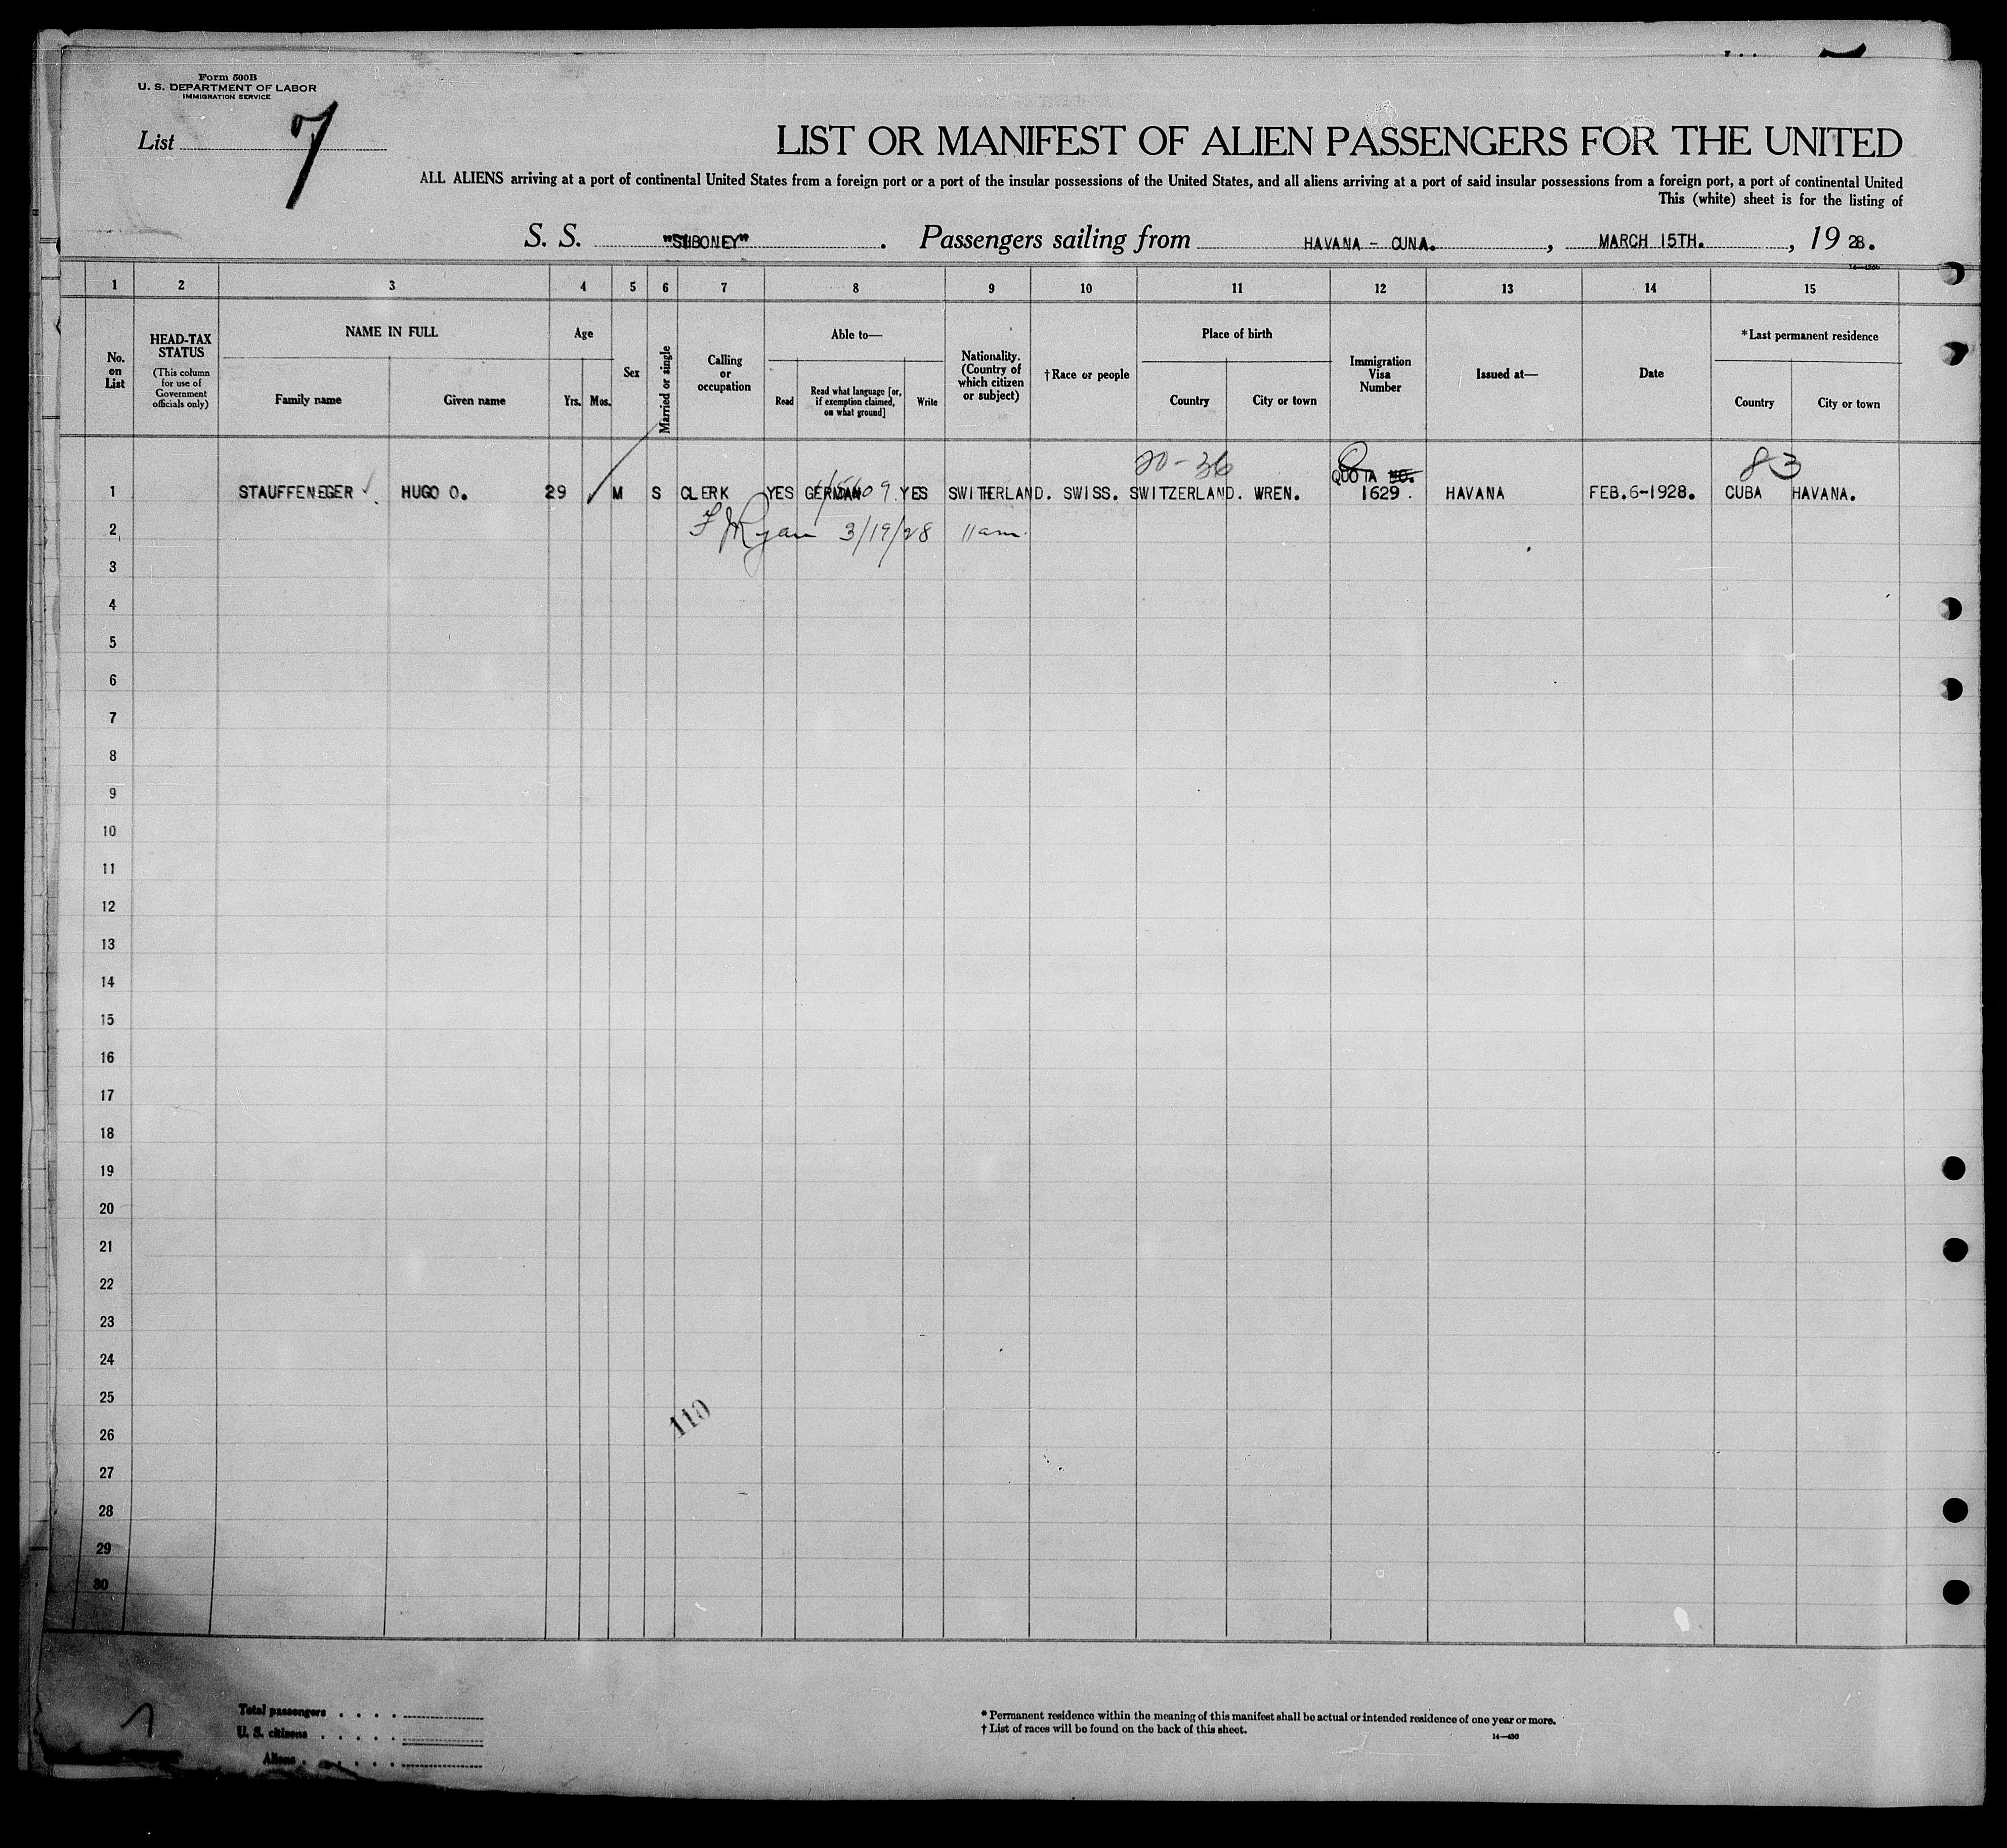 Form 500B
U. S. DEPARTMENT OF LABOR
IMMIGRATION SERVICE
List 7
LIST OR MANIFEST OF ALIEN PASSENGERS FOR THE UNITED
ALL ALIENS arriving at a port of continental United States from a foreign port or a port of the insular possessions of the United States, and all aliens arriving at a port of said insular possessions from a foreign port, a port of continental United
This (white) sheet is for the listing of
S. S. "SIBONEY" . Passengers sailing from HAVANA - CUNA. , MARCH 15TH. , 19 28.
1 2 3 4 5 6 7 8 9 10 11 12 13 14 15
No. on List
HEAD-TAX STATUS (This column for use of Government officials only)
NAME IN FULL
Family name
Given name
Age
Yrs. Mos.
Sex
Married or single
Calling or occupation
Able to—
Read
Read what language [or, if exemption claimed, on what ground]
Write
Nationality. (Country of which citizen or subject)
†Race or people
Place of birth
Country
City or town
Immigration Visa Number
Issued at—
Date
*Last permanent residence
Country
City or town
20-36 83
QUOTA NO.
1 STAUFFENEGER HUGO O. 29 M S CLERK YES GERMAN YES SWITHERLAND. SWISS. SWITZERLAND. WREN. 1629. HAVANA FEB.6-1928. CUBA HAVANA.
2 F J Ryan 3/19/28 11am.
3
4
5
6
7
8
9
10
11
12
13
14
15
16
17
18
19
20
21
22
23
24
25
110
26
27
28
29
30
Total passengers . . . .
U. S. citizens . . . . .
Aliens . . . . . .
* Permanent residence within the meaning of this manifest shall be actual or intended residence of one year or more.
† List of races will be found on the back of this sheet.
14—430